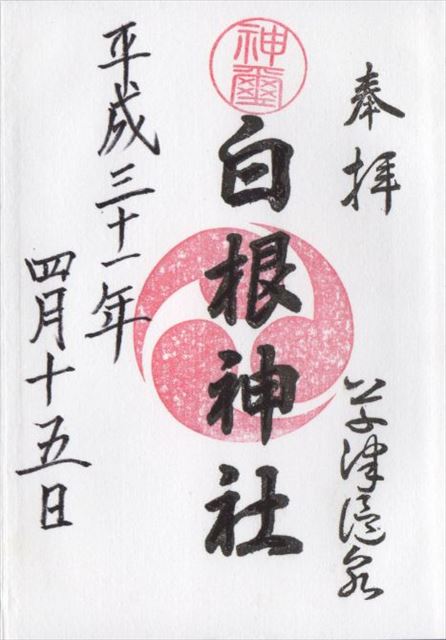 奉拝
草津温泉
神璽
白根神社
平成三十一年
四月十五日